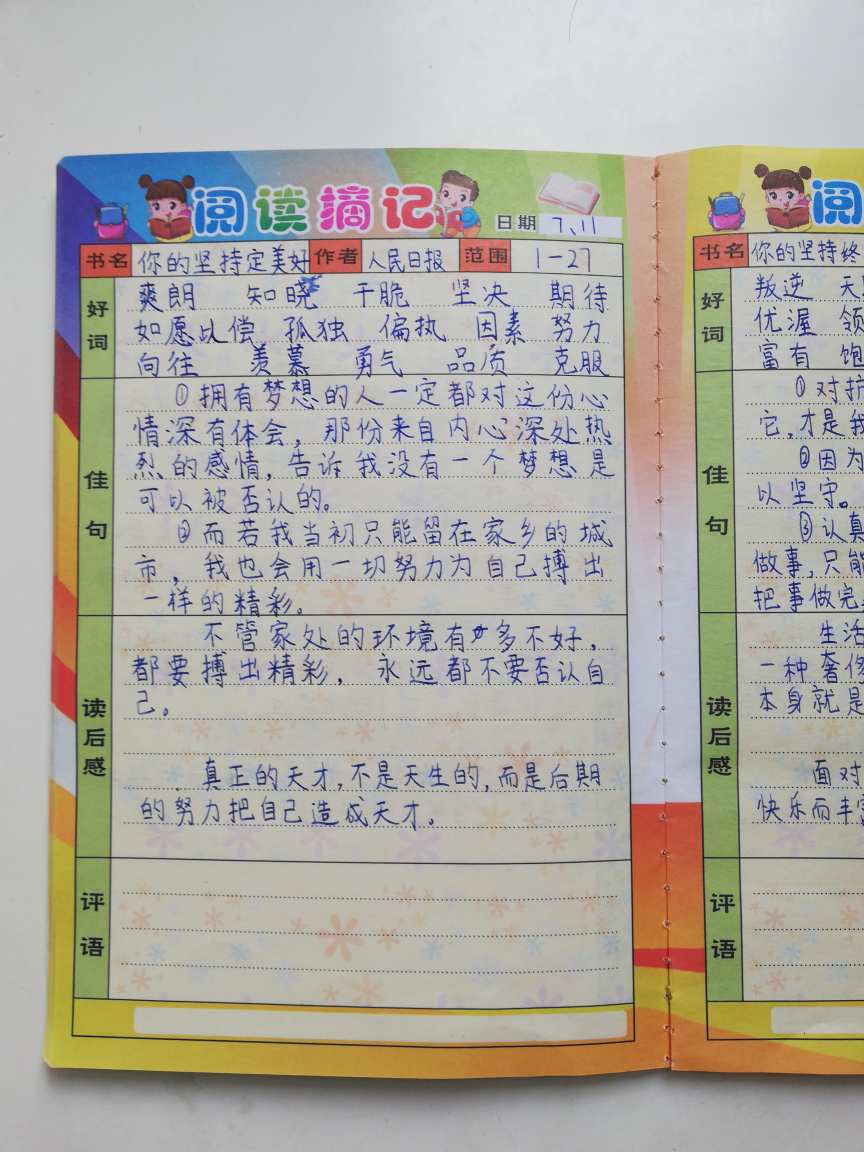 阅读摘记
日期 7、11
书名 你的坚持定美好 作者 人民日报 范围 1-27
好词
爽朗 知晓 干脆 坚决 期待
如愿以偿 孤独 偏执 因素 努力
向往 羡慕 勇气 品质 克服
佳句
①拥有梦想的人一定都对这份心
情深有体会，那份来自内心深处热
烈的感情，告诉我没有一个梦想是
可以被否认的。
②而若我当初只能留在家乡的城
市，我也会用一切努力为自己搏出
一样的精彩。
读后感
不管家处的环境有多不好，
都要搏出精彩，永远都不要否认自
己。
真正的天才，不是天生的，而是后期
的努力把自己造成天才。
评语
阅
书名 你的坚持终
好词
叛逆
优渥 领
富有 饱
佳句
①对
它，才是我
②因为
以坚守。
③认真
做事，只能
把事做完
读后感
生活
一种奢侈
本身就是
面对
快乐而丰富
评语